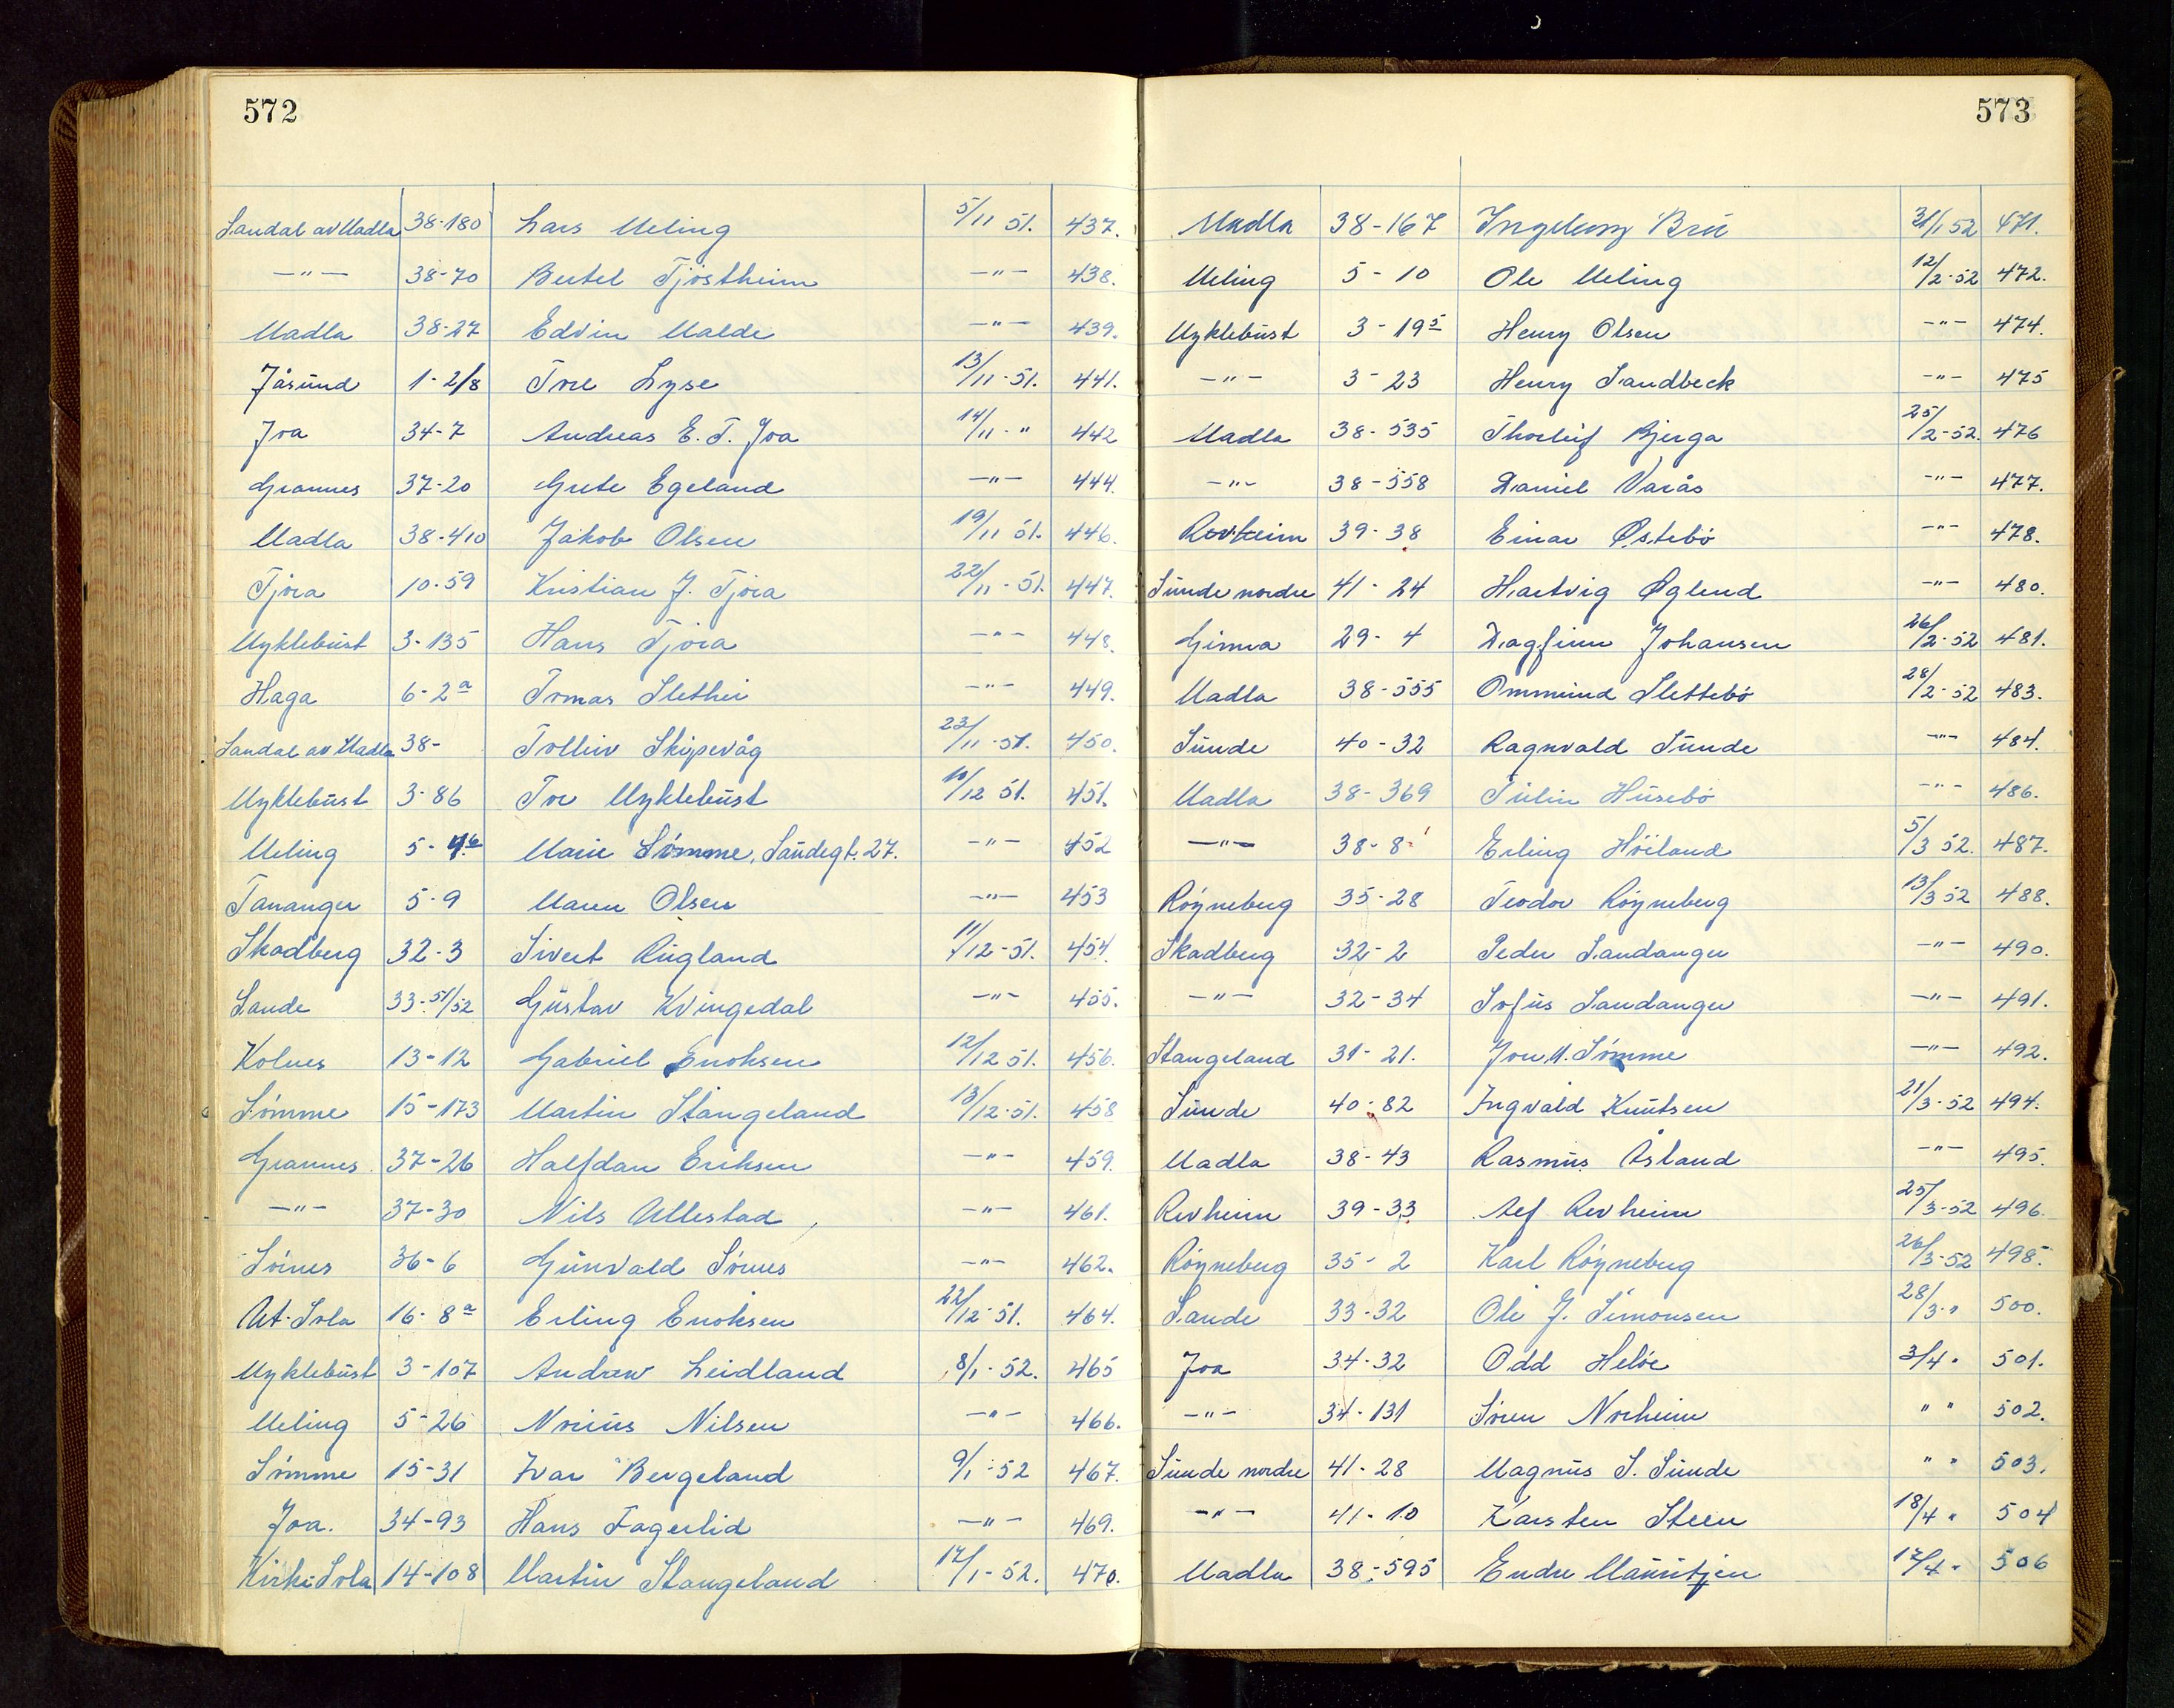 572
Sandal av Madla 38-180 Lars Meling 5/11 51. 437.
—"— 38-70 Bertel Tjöstheim —"— 438.
Madla 38-27 Edvin Malde —"— 439.
Jåsund 1-2/8 Tore Lyse 13/11-51. 441.
Joa 34-7 Andreas E. T. Joa 14/11-" 442
Grannes 37-20 Grete Egeland —"— 444.
Madla 38-410 Jakob Olsen 19/11 51. 446.
Tjora 10-59 Kristian J. Tjora 22/11-51. 447.
Myklebust 3-135 Hans Tjora —"— 448.
Haga 6-2a Tomas Slethei —"— 449.
Sandal av Madla 38- Tolleiv Skipevåg 23/11-51. 450.
Myklebust 3-86 Tor Myklebust 10/12 51. 451.
Meling 5- Marie Sömme, Sandegt. 27. —"— 452
Tananger 5-9 Maren Olsen —"— 453
Skadberg 32-3 Sivert Rugland 11/12-51. 454.
Sande 33-51/52 Gustav Kvingedal —"— 455.
Kolnes 13-12 Gabriel Enoksen 12/12 51. 456.
Sömme 15-173 Martin Stangeland 13/12-51. 458
Grannes 37-26 Halfdan Eriksen —"— 459.
—"— 37-30 Nils Allestad —"— 461.
Sörnes 36-6 Gunvald Sörnes —"— 462.
Ut-Sola 16-8a Erling Enoksen 22/12-51. 464.
Myklebust 3-107 Andrew Leidland 8/1-52. 465
Meling 5-26 Norius Nilsen —"— 466.
Sömme 15-31 Ivar Bergeland 9/1-52 467.
Joa. 34-93 Hans Fagerlid —"— 469.
Kirke Sola 14-108 Martin Stangeland 17/1-52. 470.
573
Madla 38-167 Ingeborg Bru 31/1 52 471.
Meling 5-10 Ole Meling 12/2-52 472.
Myklebust 3-195 Henry Olsen —"— 474.
—"— 3-23 Henry Sandbeck —"— 475
Madla 38-535 Thorleif Bjerga 25/2-52. 476
—"— 38-558 Daniel Varås —"— 477.
Revheim 39-38 Einar Østebö —"— 478.
Sunde nordre 41-24 Hartvig Øglend —"— 480.
Gimra 29-4 Dagfinn Johansen 26/2-52 481.
Madla 38-555 Ommund Slettebö 28/2-52 483.
Sunde 40-32 Ragnvald Sunde —"— 484.
Madla 38-369 Tulin Husebö —"— 486.
—"— 38-8 Erling Höiland 5/3 52. 487.
Röyneberg 35-28 Teodor Röyneberg 13/3 52 488.
Skadberg 32-2 Peder Sandanger —"— 490.
—"— 32-34 Sofus Sandanger —"— 491.
Stangeland 31-21. Jon M. Sömme —"— 492.
Sunde 40-82 Ingvald Knutsen 21/3-52 494.
Madla 38-43 Rasmus Åsland —"— 495.
Revheim 39-33 Alf Revheim 25/3-52 496.
Röyneberg 35-2 Karl Röyneberg 26/3-52 498.
Sande 33-32 Ole J. Simonsen 28/3-" 500.
Joa 34-32 Odd Helöe 3/4 " 501.
—"— 34-131 Sören Norheim " " 502.
Sunde nordre 41-28 Magnus S. Sunde " " 503.
—"— 41-10 Karsten Steen 18/4 " 504
Madla 38-595 Endre Mauritzen 17/4 " 506